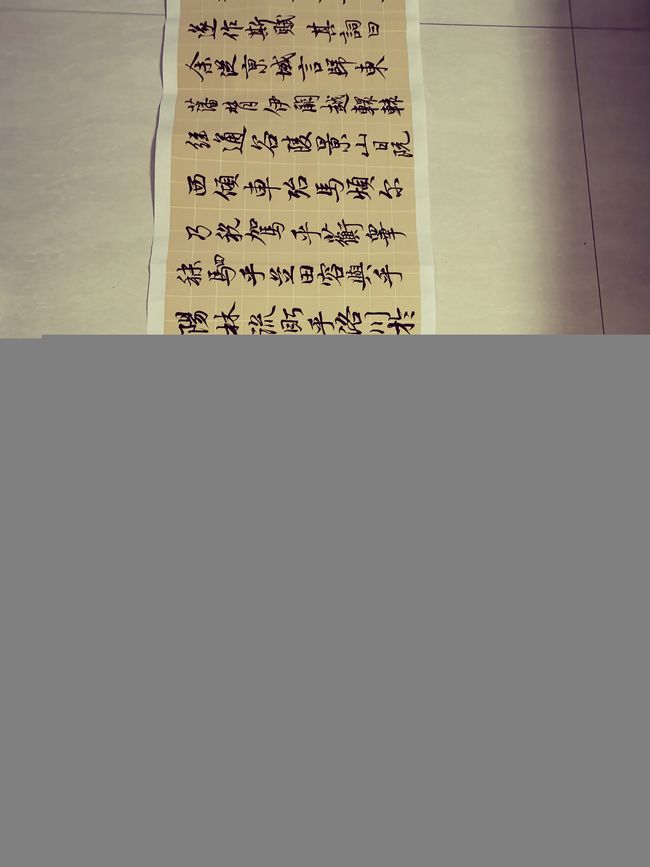 遂作斯賦 其詞曰
余從京域言歸東
藩背伊闕越轘轅
經通谷陵景山日既
西傾車殆馬煩尔
乃稅駕乎蘅皐
秣駟乎芝田容與乎
陽林流眄乎洛川於